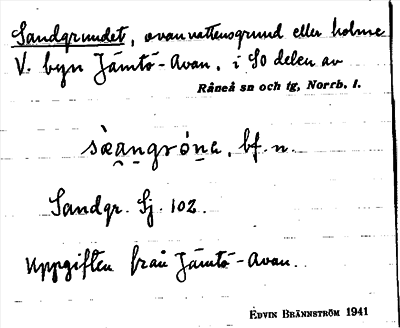 Sandgrundet, ovanvattensgrund eller holme
V. byn Jämtö-Avan, i SO delen av
Råneå sn och tg, Norrb. l.
bf. n.
Sandgr. Sj. 102.
Uppgiften från Jämtö-Avan.
EDVIN BRÄNNSTRÖM 1941